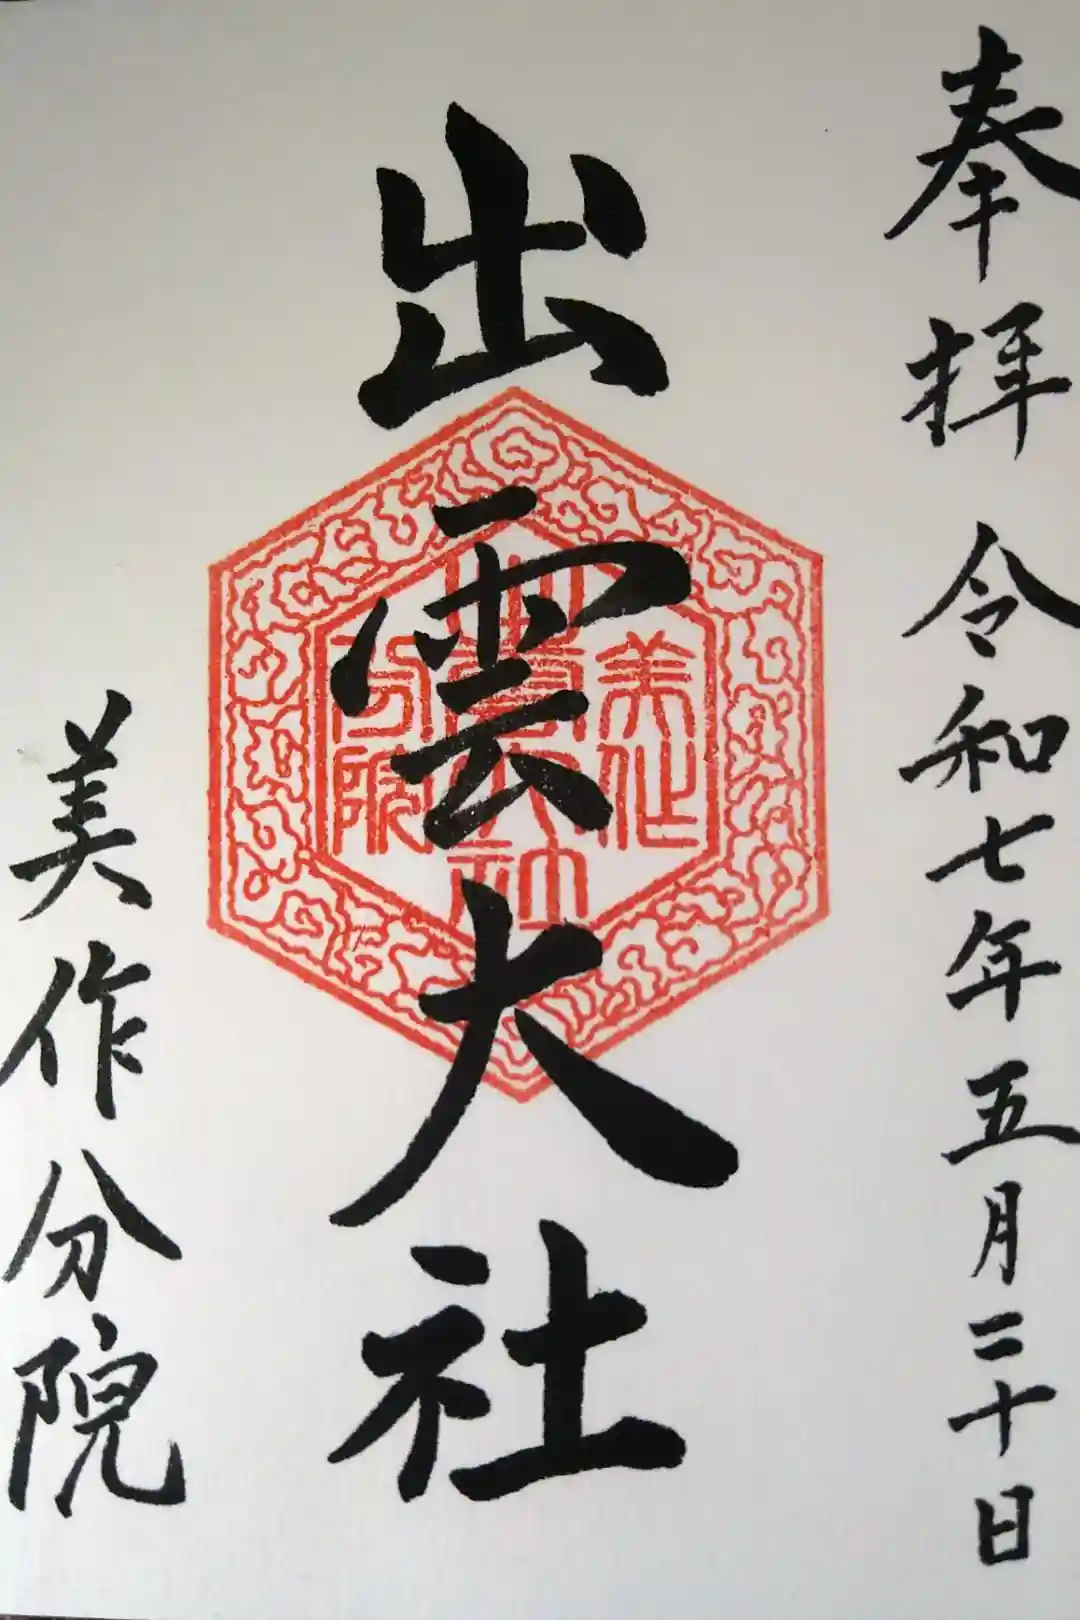 奉拝 令和七年五月二十日
出雲大社
美作分院
美作
出雲大社
分院